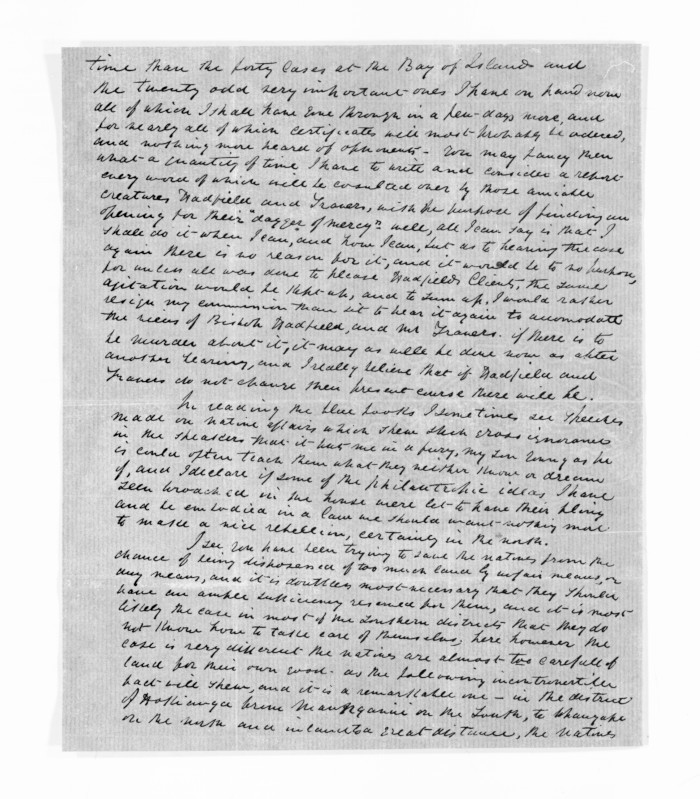 time than the forty Cases at the Bay of Islands and
the twenty odd very important ones I have on hand now
all of which I shall have gone through in a few days more, and
for nearly all of which certificates will most probably be ordered,
and nothing more heard of opponents - You may fancy then
what a quantity of time I have to write and consider a report
every word of which will be consulted over by those amiable
creatures Hadfield and Travers, with the purpose of finding an
opening for their "dagger of mercy" well, all I can say is that I
shall do it when I can, and how I can, but as to hearing the case
again there is no reason for it, and it would be to no purpose,
for unless all was done to please Hadfields Clients, the same
agitation would be kept up, and to sum up, I would rather
resign my commission than sit to hear it again to accomodate
the views of Bishop Hadfield, and Mr Travers. if there is to
be murder about it, it may as well be done now as after
another hearing, and I really believe that if Hadfield and
Travers do not change their present course there will be.
In reading the blue books I sometimes see speeches
made on native affairs which shew such gross ignorance
in the speakers that it puts me in a fury, my son young as he
is could often teach them what they neither know or dream
of, and I declare if some of the philanthropic ideas I have
seen broached in the house were let to have their fling
and be embodied in a law we should want nothing more
to make a nice rebellion, certainly in the north.
I see you have been trying to save the natives from the
chance of being dispossessed of too much land by unfair means, or
any means, and it is doubtless most necessary that they should
have an ample sufficiency reserved for them, and it is most
likely the case in most of the Southern districts that they do
not know how to take care of themselves, here however the
case is very different the natives are almost too careful of
land for their own good. as the following incontrovertible
fact will shew, and it is a remarkable one - in the district
of Hokianga from Maunganui on the South, to Whangape
on the north and inland to a great distance, the natives